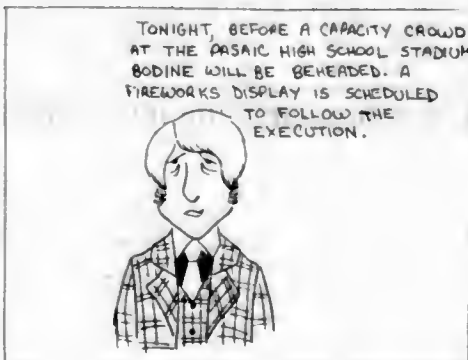 TONIGHT, BEFORE A CAPACITY CROWD
AT THE PASAIC HIGH SCHOOL STADIUM
BODINE WILL BE BEHEADED. A
FIREWORKS DISPLAY IS SCHEDULED
TO FOLLOW THE
EXECUTION.